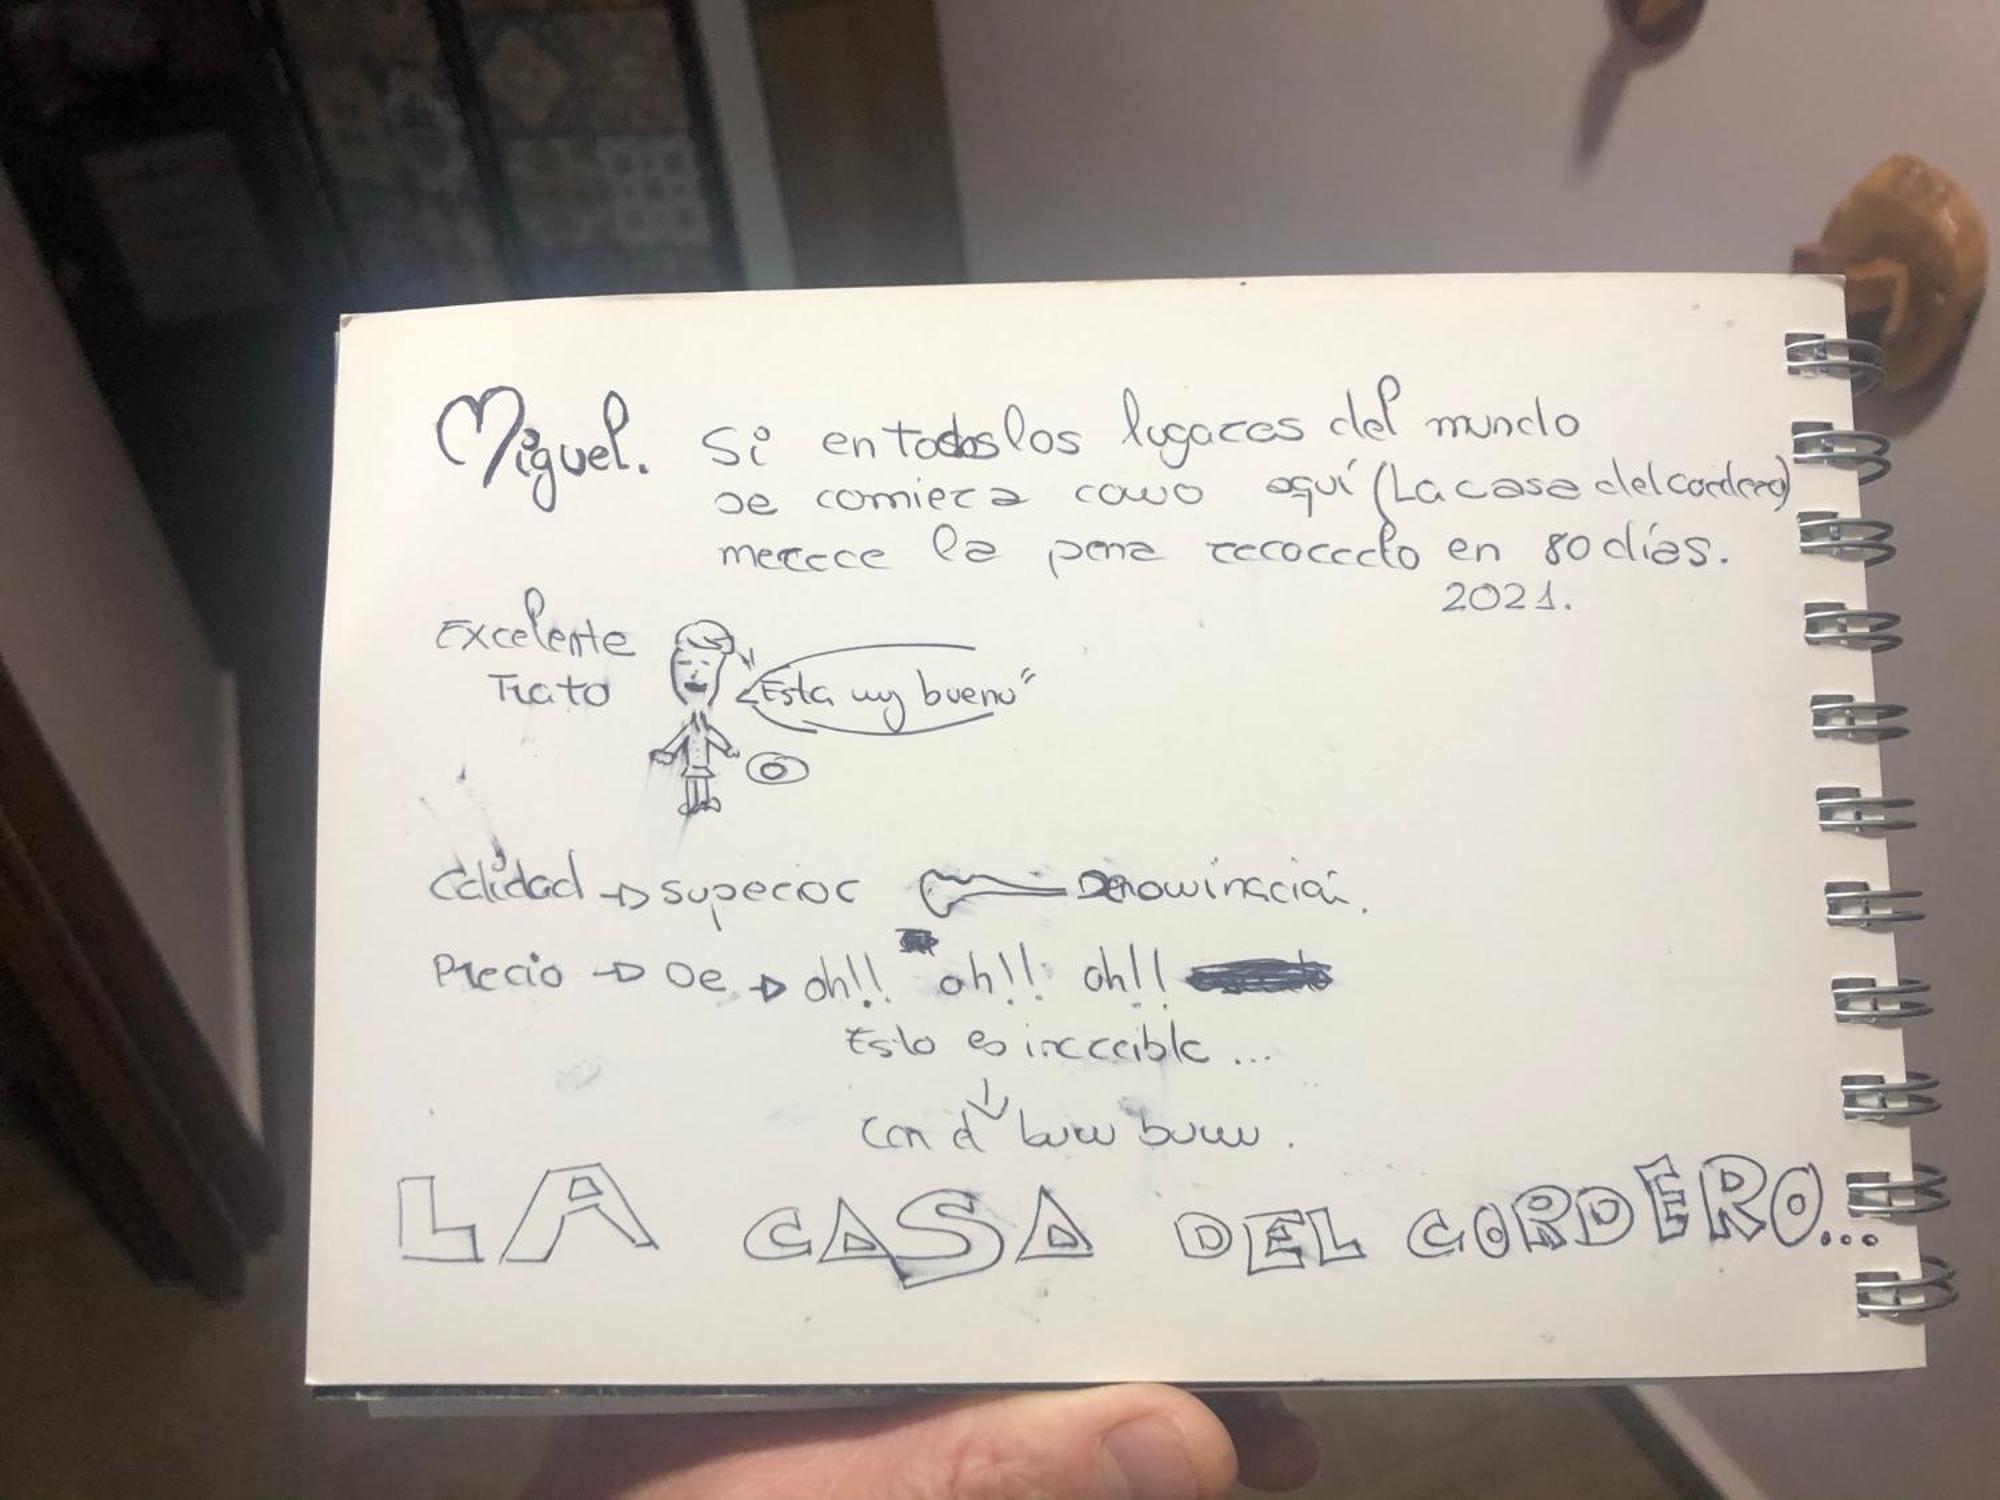 Miguel. Si en todos los lugares del mundo
se comiera como aquí (La casa del cordero)
merece la pena recorrerlo en 80 días.
2021.
Excelente
Trato
"Esta muy bueno"
Calidad → superior Denominación.
Precio → De → oh!! oh!! oh!!
Esto es increible...
↓
Con el
LA CASA DEL CORDERO...